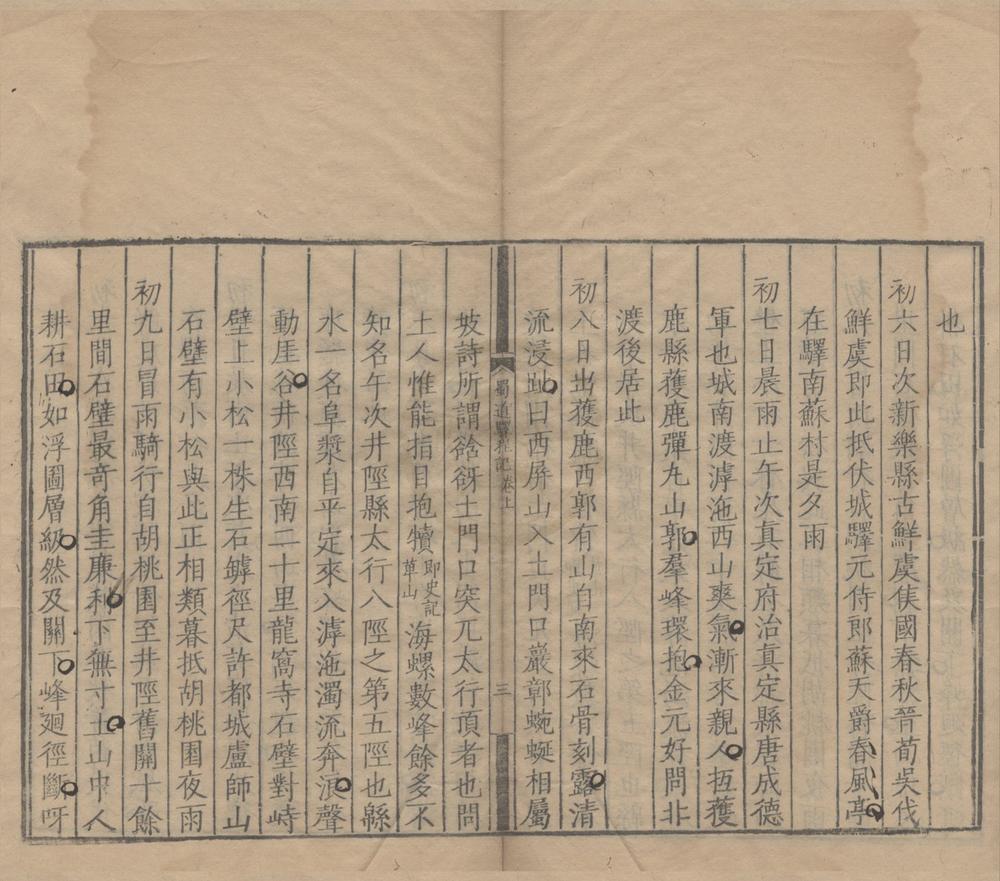 也
初六日次新樂縣古鮮虞侯國春秋晉荀吳伐
鮮虞即此抵伏城驛元侍郎蘇天爵春風亭
在驛南蘇村是夕雨
初七日晨雨止午次真定府治真定縣唐成德
軍也城南渡滹沲西山爽氣漸來親人抵獲
鹿縣獲鹿彈丸山郭羣峰環抱金元好問非
渡後居此
初八日出獲鹿西郭有山自南來石骨刻露清
流浸趾曰西屏山入土門口巖鄣蜿蜒相屬
蜀道驛程記卷上
三
坡詩所謂谽谺土門口突兀太行頂者也問
土人惟能指目抱犢即史記萆山海螺數峰餘多不
知名午次井陘縣太行八陘之第五陘也緜
水一名阜漿自平定來入滹沲濁流奔湏聲
動厓谷井陘西南二十里龍窩寺石壁對峙
壁上小松一株生石罅徑尺許都城盧師山
石壁有小松與此正相類暮抵胡桃園夜雨
初九日冒雨騎行自胡桃園至井陘舊關十餘
里間石壁最奇角圭廉利下無寸土山中人
耕石田如浮圖層級然及關下峰廻徑斷呀